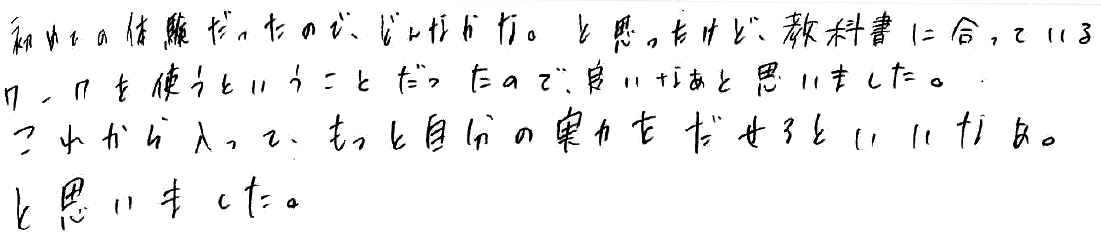 初めての体験だったので、どんなかな。と思ったけど、教科書に合っている
ワークを使うということだったので、良いなあと思いました。
これから入って、もっと自分の実力をだせるといいなあ。
と思いました。